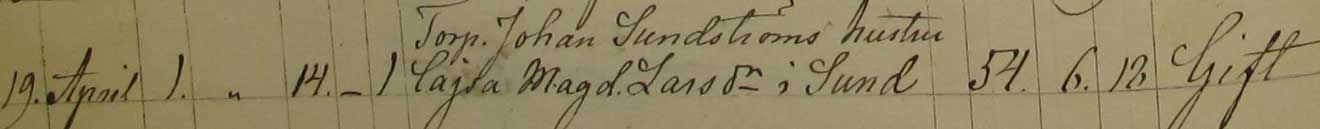 Torp. Johan Sundströms hustru
19. April 1. " 14. – 1 Cajsa Magd. Larsdr i Sund 54. 6. 12 Gift